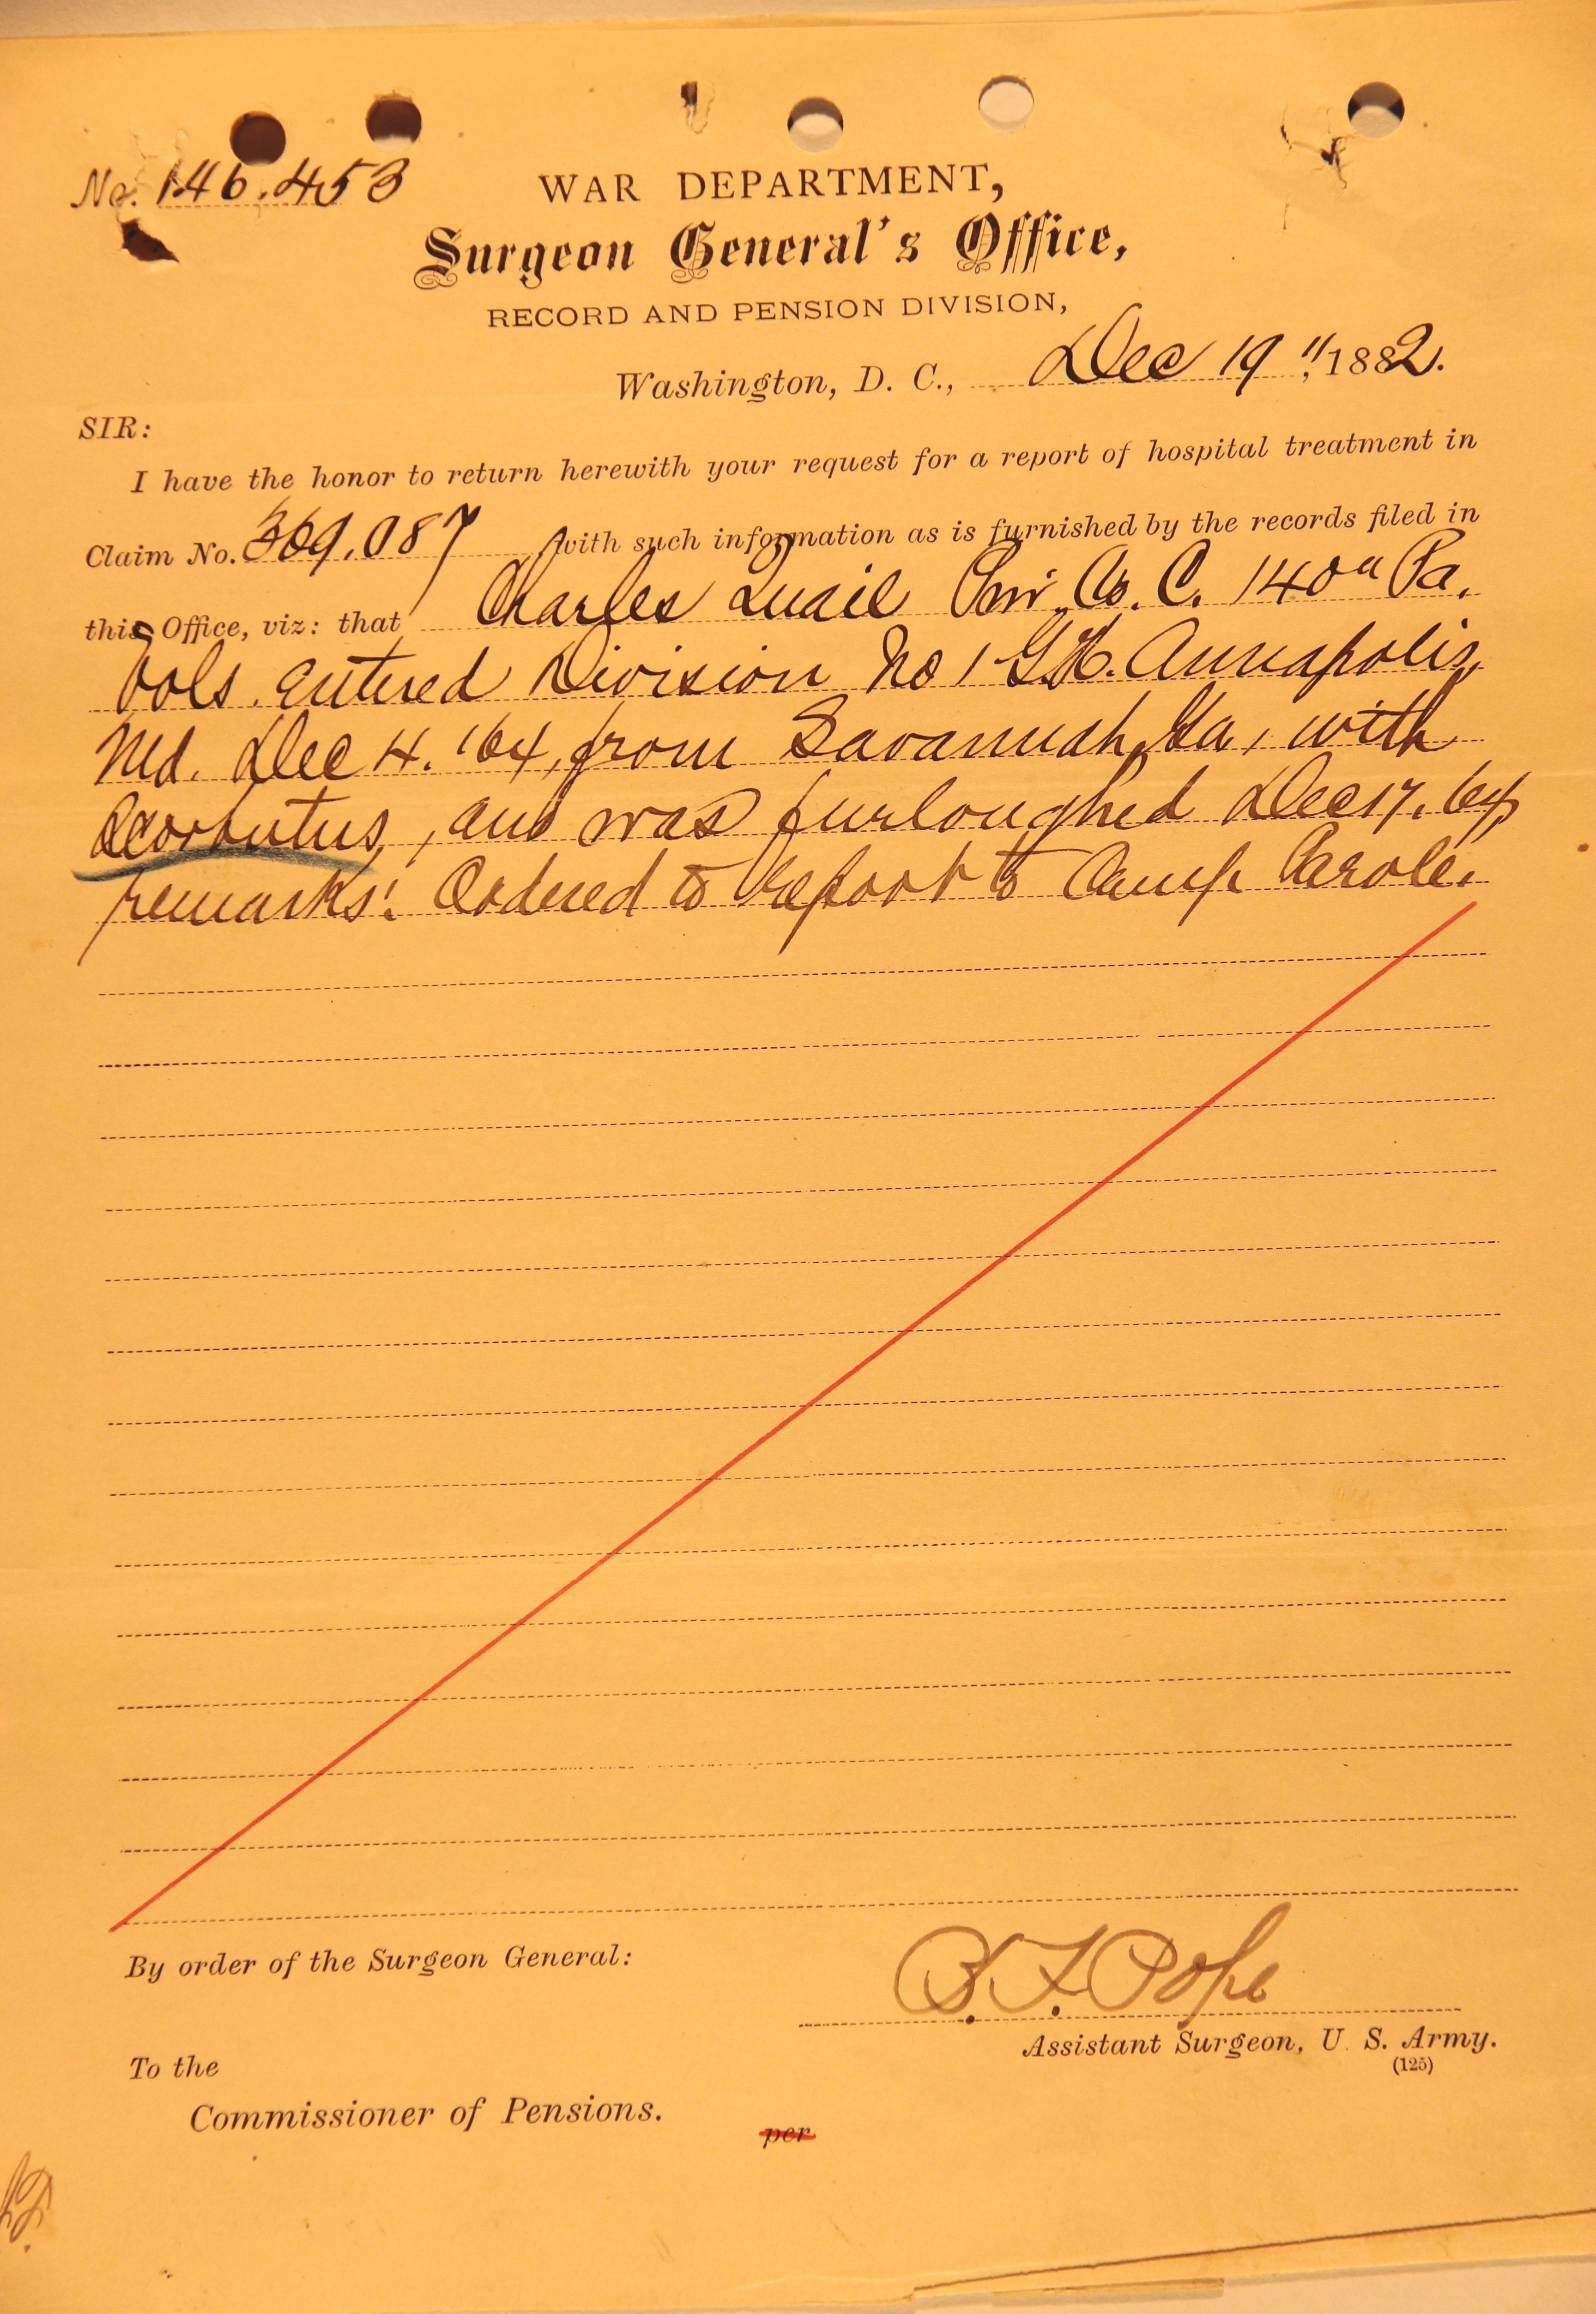 No. 146.453
WAR DEPARTMENT,
Surgeon General's Office,
RECORD AND PENSION DIVISION,
Washington, D. C., Dec 19", 1882.
SIR:
I have the honor to return herewith your request for a report of hospital treatment in
Claim No. 369.087 with such information as is furnished by the records filed in
this Office, viz: that Charles Quail Pvi. Co. C. 140" Pa.
Vols. Entered Division No 1 G.H. Annapolis,
Md. Dec 4. '64, from Savannah, Ga, with
Scorbutus, and was furloughed Dec 17. 64,
remarks: Ordered to report to Camp Parole.
By order of the Surgeon General:
B. F. Pope
Assistant Surgeon, U. S. Army.
(125)
To the
Commissioner of Pensions.
per